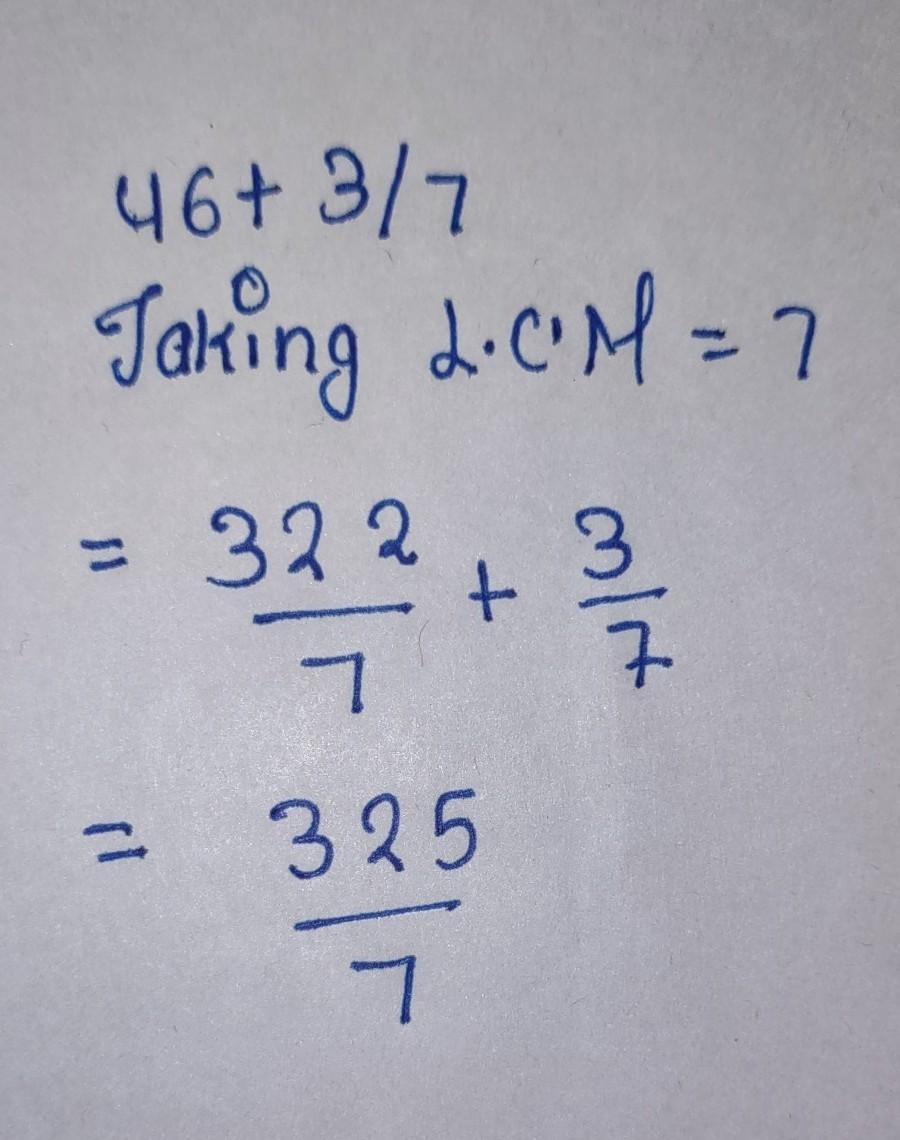 46+ 3/7
Taking L.C.M = 7
= 322/7 + 3/7
= 325/7